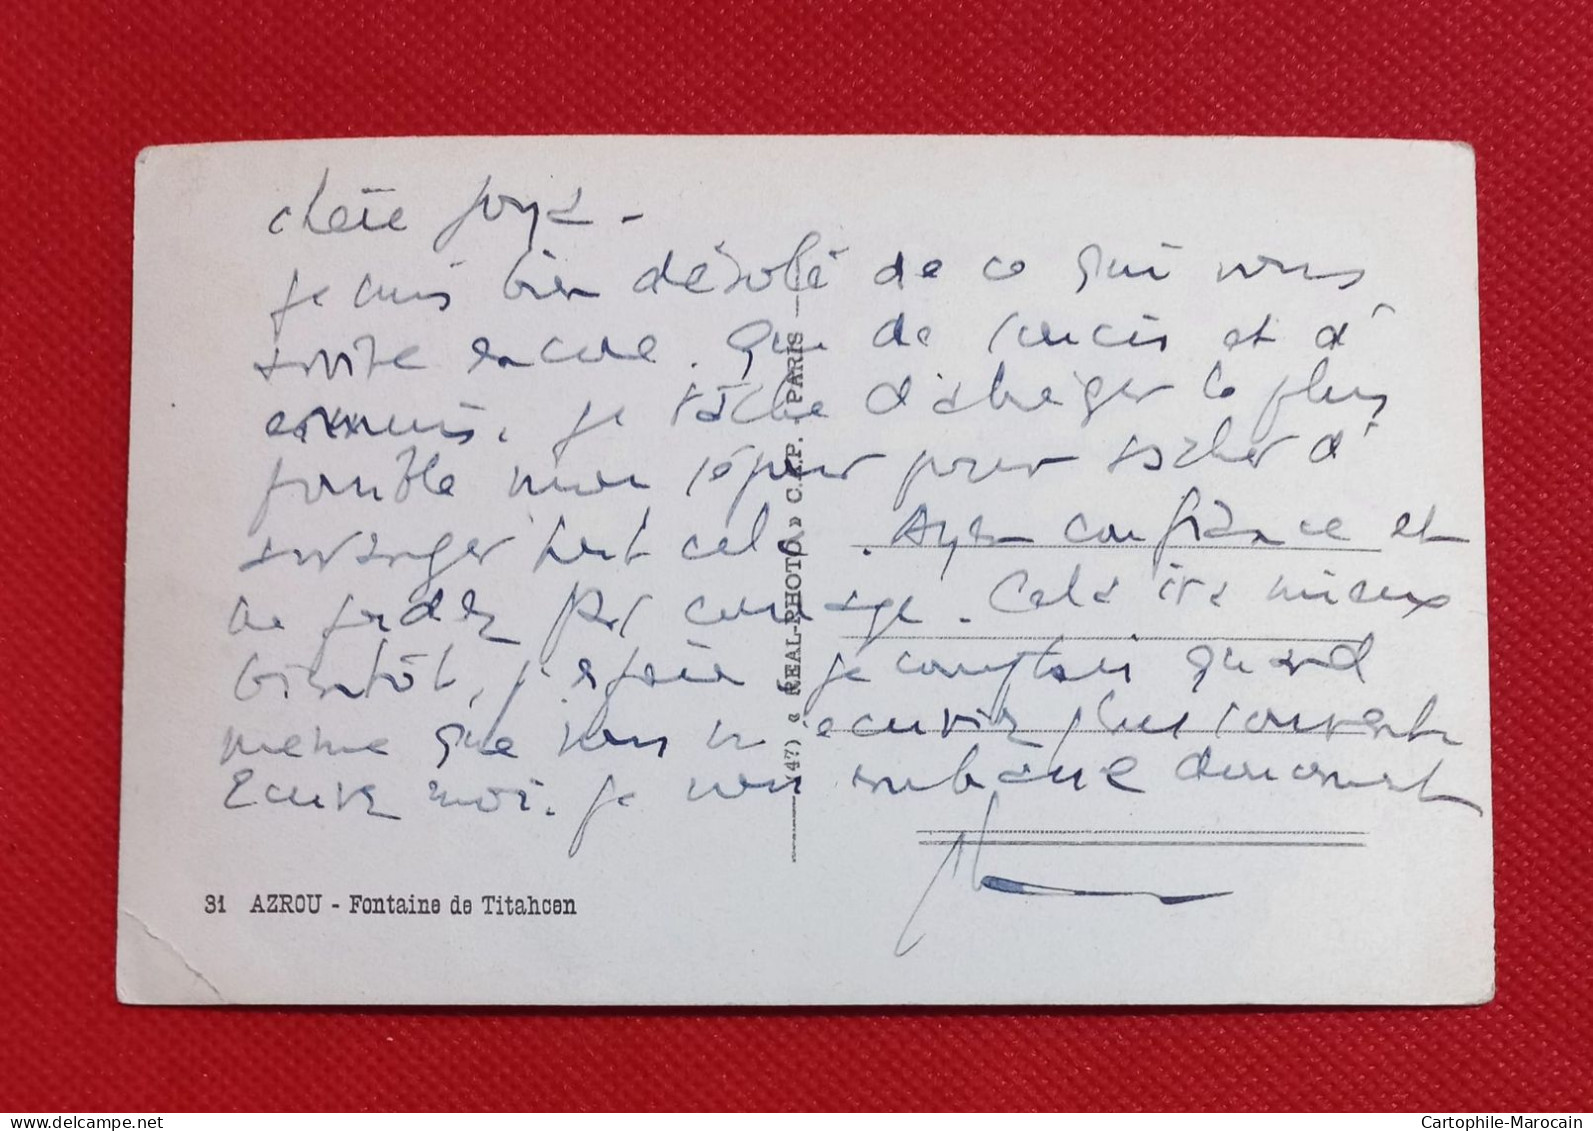 chère Joya -
je suis bien désolé de ce qui vous
arrive encore. Que de soucis et d'
ennuis. je tâche d'abréger le plus
possible mon séjour pour tâcher d'
arranger tout cela. Ayez confiance et
ne perdez pas courage. Cela ira mieux
bientôt, j'espère je comptais quand
meme que vous m'écririez plus souvent
Ecrivez moi. je vous embrasse doucement
31 AZROU - Fontaine de Titahcen
(47) « REAL-PHOTO » C.A.P. - PARIS
Cartophile-Marocain
delcampe.net